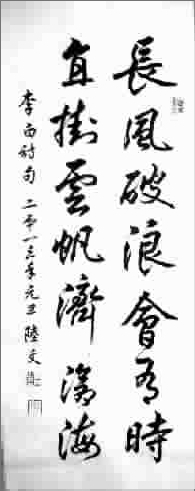 長風破浪會有時
直掛雲帆濟滄海
李白詩句 二零一三年元旦 陸文